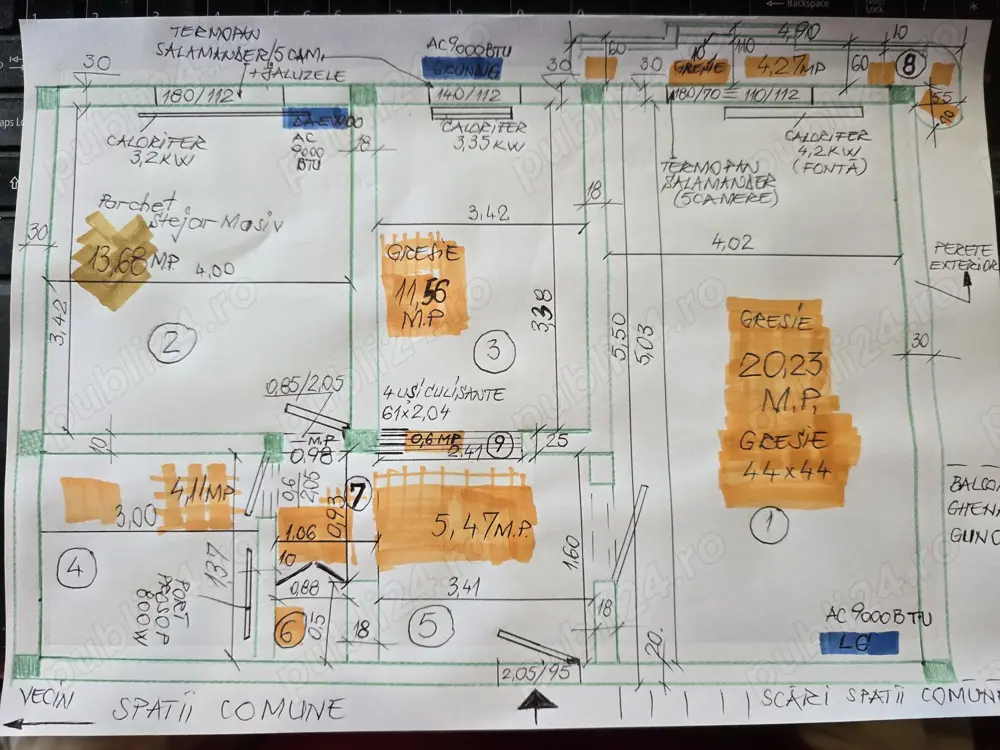 Backspace
Num
Lock
TERMOPAN
SALAMANDER/5CAM.
+JALUZELE
AC9000BTU
GRUNDIG
4,90
10
60
110
10
60
GRESIE
4,27MP
8
55
10
30
30
30
180/112
140/112
180/70
110/112
DAEWOO
AC
9000
BTU
18
CALORIFER
3,2KW
CALORIFER
3,35KW
CALORIFER
4,2KW
(FONTĂ)
TERMOPAN
SALAMANDER
(5CAMERE)
Parchet
Stejar Masiv
13,68 MP.
4,00
3,42
30
2
3,42
GRESIE
11,56
M.P
3
3,38
18
5,50
5,03
4,02
PERETE
EXTERIOR
30
GRESIE
20,23
M.P.
GRESIE
44x44
1
0,85/2,05
4 UȘI CULISANTE
61x2,04
0,6 MP
9
2,41
25
10
M.P
0,98
0,6
2,05
0,93
7
4,11MP
3,00
4
1,37
PORT
PROSOP
800W
1.06
10
0,88
6
0,5
18
5,47M.P.
3,41
5
1,60
18
20.
2,05/95
AC 9000BTU
LG
BALCO
GHEN
GUNO
VECIN
SPATII COMUNE
SCĂRI SPATII COMUN
publi24.ro